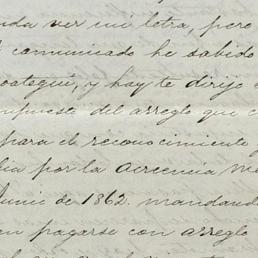 nda ver mi letra, pero
comunicado he sabido
oategui, y hoy te dirijo
mpuesta del arreglo que c
para el reconocimiento
lia por la acreencia Me
Junio de 1862. mandand
en pagarse con arreglo